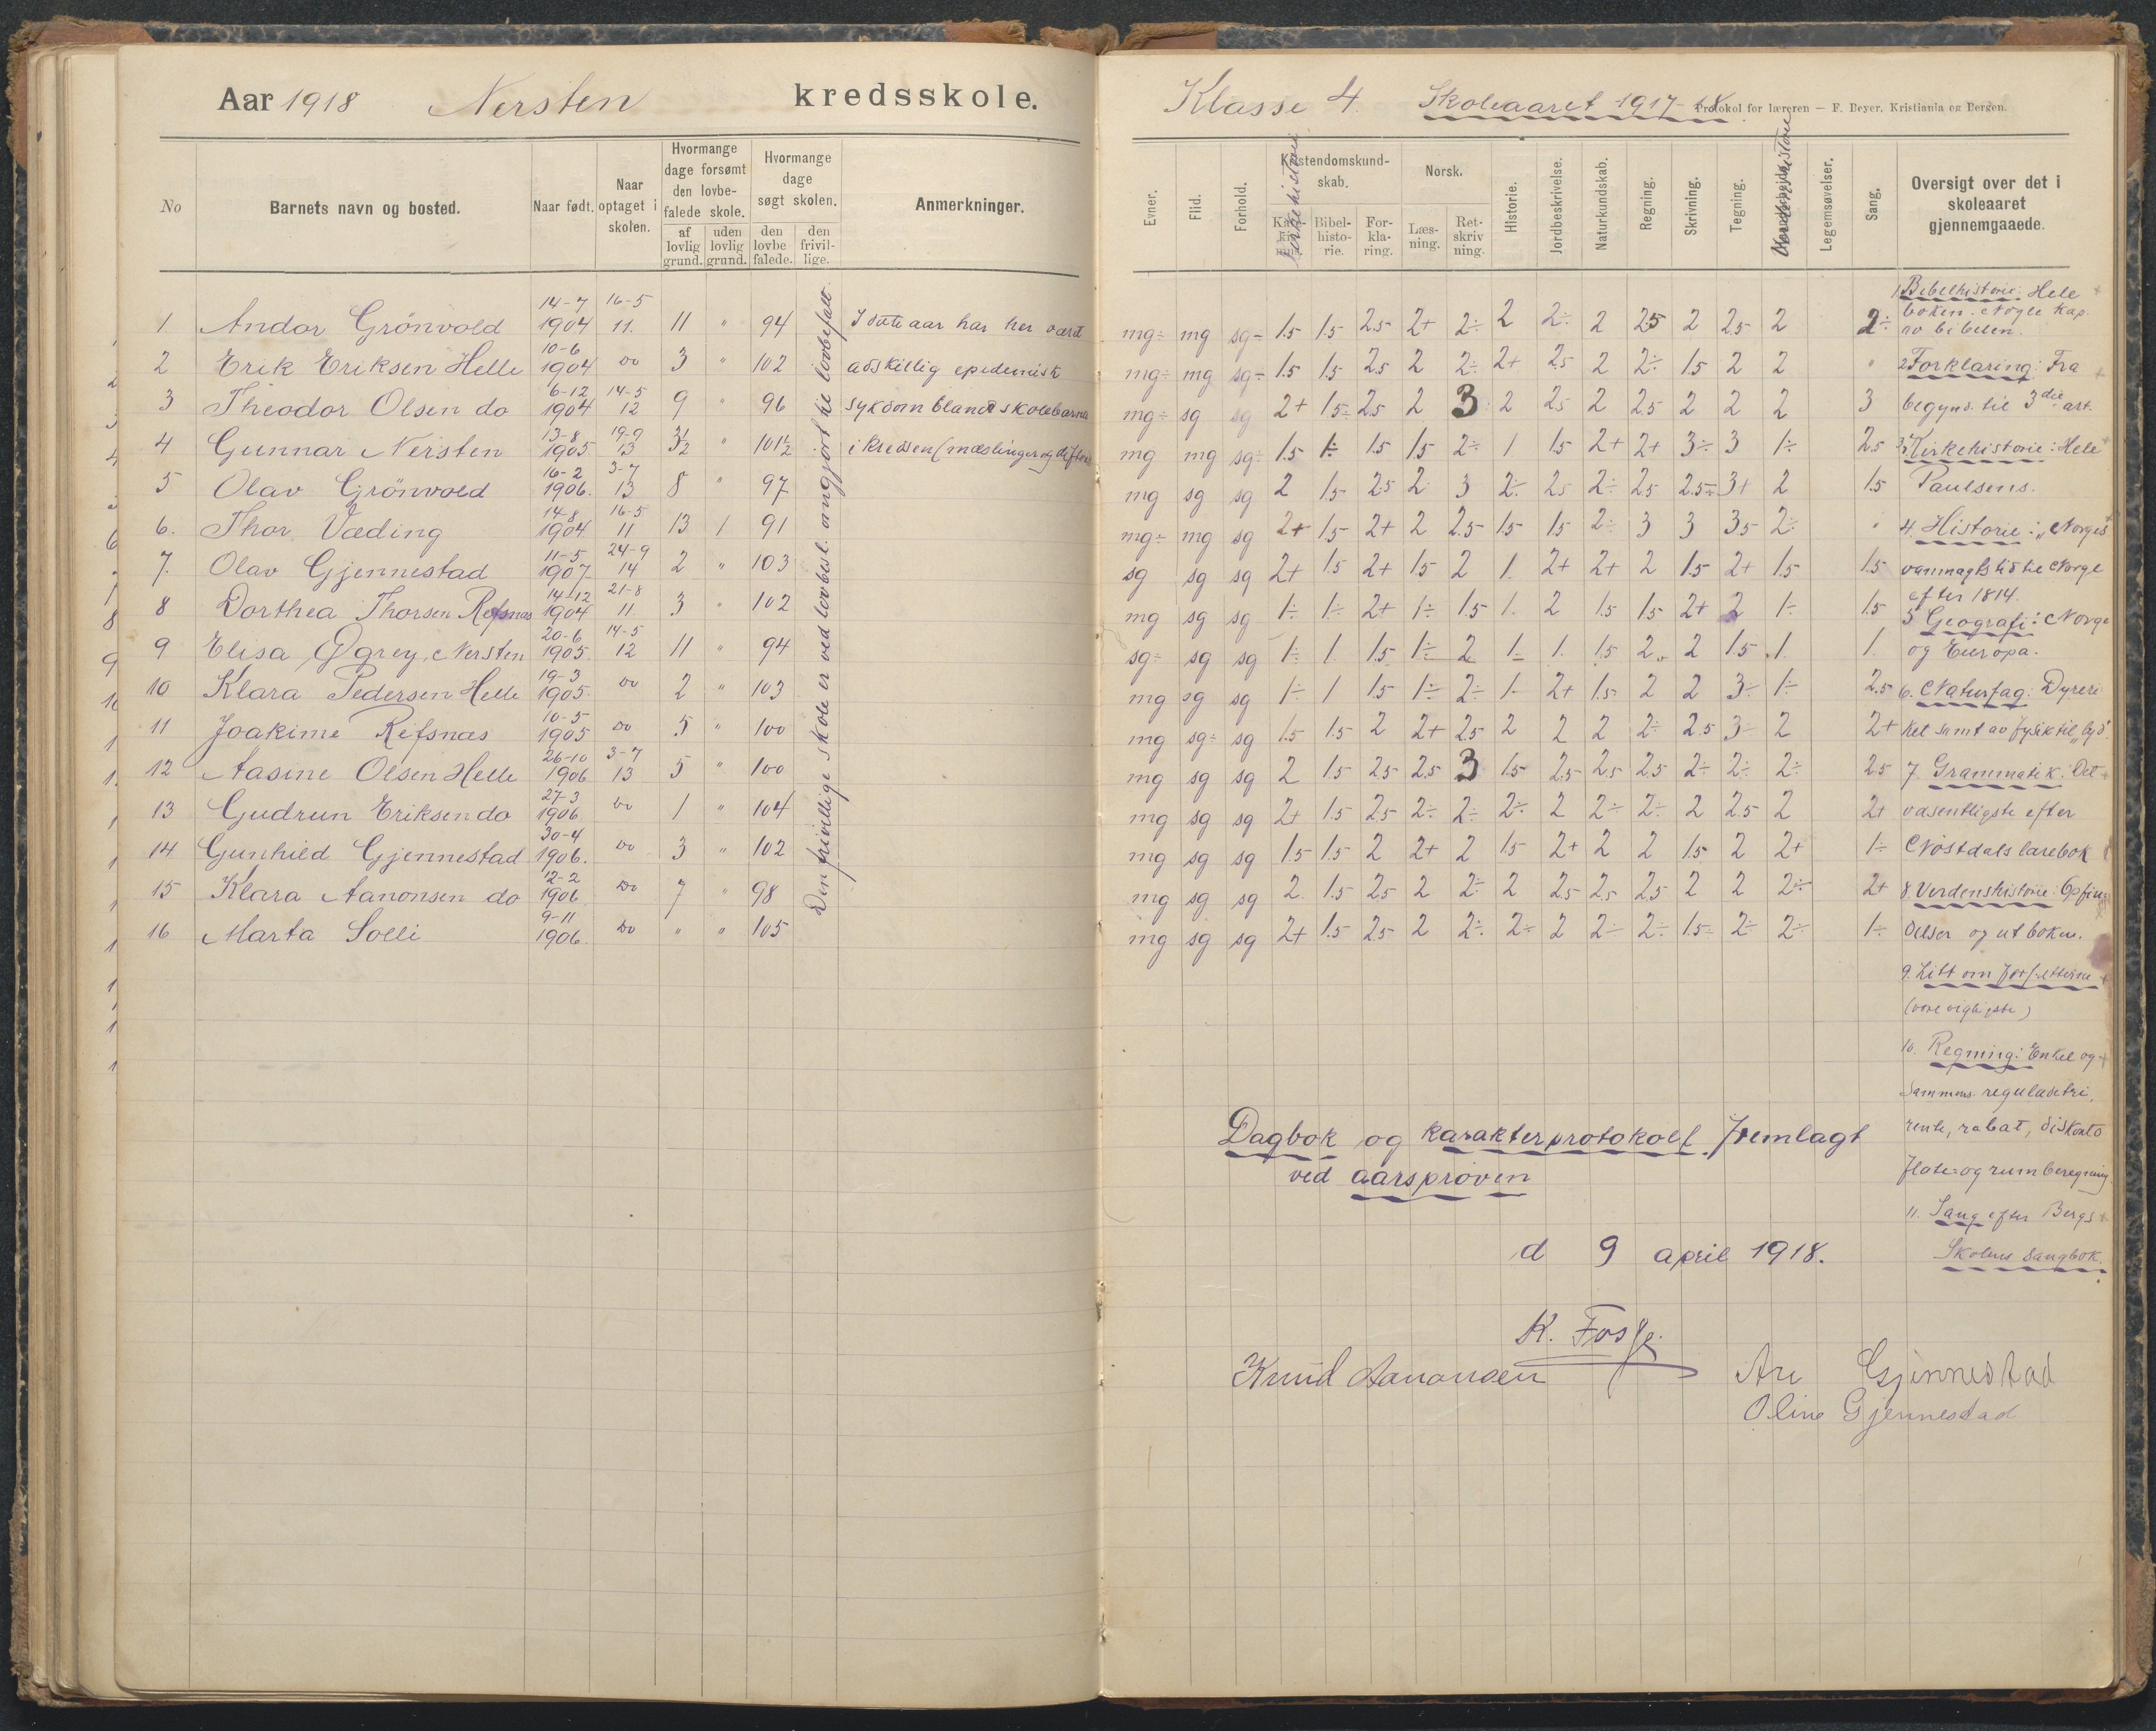 Aar 1918 Nersten kredsskole.
No
Barnets navn og bosted.
Naar født.
Naar optaget i skolen.
Hvormange dage forsømt den lovbefalede skole.
af lovlig grund.
uden lovlig grund.
Hvormange dage søgt skolen.
den lovbefalede.
den frivillige.
Anmerkninger.
1. Andor Grönvold 14-7 1904 16-5 11. 11 " 94 I dette aar har her været
2 Erik Eriksen Helle 10-6 1904 do 3 " 102 adskillig epedemisk
3 Theodor Olsen do 6-12 1904 14-5 12 9 " 96 sykdom blandt skolebarna
4 Gunnar Nersten 13-8 1905 19-9 13 3½ " 101½ i kredsen (mæslinger og difteri
5 Olav Grönvold 16-2 1906. 3-7 13 8 " 97
6. Thor Væding 14-8 1904 16-5 11 13 1 91
7. Olav Gjennestad 11-5 1907 24-9 14 2 " 103
8 Dorthea Thorsen Refsnæs 14-12 1904 21-8 11 3 " 102
9 Elisa Ögrey, Nersten 20-6 1905. 14-5 12 11 " 94
10 Klara Pedersen Helle 19-3 1905. do 2 " 103
11 Joakime Refsnæs 10-5 1905 do 5 " 100
12 Aasine Olsen Helle 26-10 1906 3-7 13 5 " 100
13 Gudrun Eriksen do 27-3 1906 do 1 " 104
14 Gunhild Gjennestad 30-4 1906. do 3 " 102
15 Klara Aanonsen do 12-2 1906 do 7 " 98
16 Marta Solli 9-11 1906. do " " 105
Den frivillige skole er ved lovbesl. angjort til lovbefalt.
Klasse 4. Skoleaaret 1917-18.
Protokol for læreren — F. Beyer, Kristiania og Bergen.
Evner.
Flid.
Forhold.
Kristendomskundskab.
Kirkehistorie
Bibelhistorie.
Forklaring.
Norsk.
Læsning.
Retskrivning.
Historie.
Jordbeskrivelse.
Naturkundskab.
Regning.
Skrivning.
Tegning.
Verdenshistorie
Legemsøvelser.
Sang.
Oversigt over det i skoleaaret gjennemgaaede.
mg÷ mg sg÷ 1.5 1.5 2.5 2+ 2÷ 2 2÷ 2 2.5 2 2.5 2 2÷
mg÷ mg sg÷ 1.5 1.5 2.5 2 2÷ 2+ 2.5 2 2÷ 1.5 2 2 "
mg÷ sg sg 2+ 1.5÷ 2.5 2 3 2 2.5 2 2.5 2 2 2 3
mg mg sg÷ 1.5 1÷ 1.5 1.5 2÷ 1 1.5 2+ 2+ 3÷ 3 1÷ 2.5
mg sg sg 2 1.5 2.5 2 3 2÷ 2.5 2÷ 2.5 2.5÷ 3+ 2 1.5
mg÷ mg sg 2+ 1.5 2+ 2 2.5 1.5 1.5 2÷ 3 3 3.5 2÷ "
sg sg sg 2+ 1.5 2+ 1.5 2 1. 2+ 2+ 2 1.5 2+ 1.5 1.5
mg sg sg 1÷ 1÷ 2+ 1÷ 1.5 1. 2 1.5 1.5 2+ 2 1÷ 1.5
sg÷ sg sg 1÷ 1. 1.5 1÷ 2 1÷ 1. 1.5 2. 2 1.5 1. 1.
mg sg sg 1÷ 1 1.5 1÷ 2÷ 1÷ 2+ 1.5 2 2 3÷ 1÷ 2.5
mg sg÷ sg 1.5 1.5 2 2+ 2.5 2 2 2 2÷ 2.5 3÷ 2 2+
mg sg sg 2 1.5 2.5 2.5 3 1.5 2.5 2.5 2.5 2÷ 2÷ 2÷ 2.5
mg sg sg 2+ 1.5 2.5 2÷ 2÷ 2÷ 2 2÷ 2÷ 2 2.5 2 2+
mg sg sg 1.5 1.5 2 2+ 2 1.5 2+ 2 2 1.5 2 2+ 1÷
mg sg sg 2. 1.5 2.5 2 2÷ 2 2.5 2.5 2.5 2 2 2÷ 2+
mg sg sg 2+ 1.5 2.5 2 2÷ 2÷ 2 2÷ 2÷ 1.5÷ 2÷ 2÷ 1÷
1 Bibelhistorie: Hele
boken. Nogle kap.
av bibelen.
2 Forklaring: Fra
begynd. til 3die art.
3. Kirkehistorie: Hele
Paulsens.
4. Historie: „Norges
vanmagtstid til Norge
efter 1814.
5 Geografi: Norge
og Europa.
6. Naturfag: Dyreri
ket samt av fysik til „lyd".
7. Grammatik: Det
væsentligste efter
Nöstdals lærebok
8. Verdenshistorie: Opfin
delser og ut boken.
9. Litt om forfatterne
(vore vigtigste)
10. Regning: Enkel og
sammens. reguladetri,
rente, rabat, diskonto
flate- og rumberegning
11. Sang efter Bergs
Skolens sangbok.
Dagbok og karakterprotokoll fremlagt
ved aarsprøven
d 9 april 1918.
Knud Aanonsen
Are Gjennestad
Oline Gjennestad